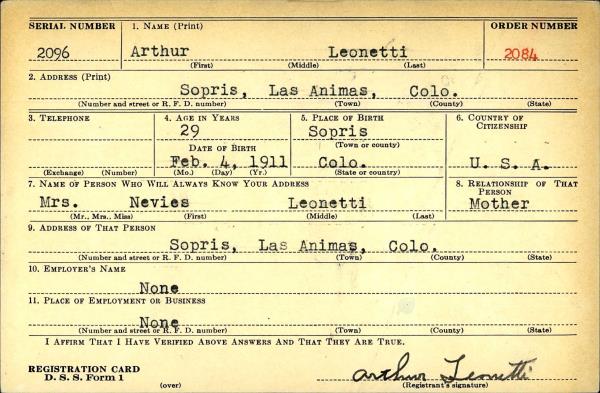 SERIAL NUMBER 1. NAME (Print) ORDER NUMBER
2096 Arthur Leonetti 2084
(First) (Middle) (Last)
2. ADDRESS (Print)
Sopris, Las Animas, Colo.
(Number and street or R. F. D. number) (Town) (County) (State)
3. TELEPHONE 4. AGE IN YEARS 5. PLACE OF BIRTH 6. COUNTRY OF CITIZENSHIP
29 Sopris
DATE OF BIRTH (Town or county)
Feb. 4, 1911 Colo. U. S. A.
(Exchange) (Number) (Mo.) (Day) (Yr.) (State or country)
7. NAME OF PERSON WHO WILL ALWAYS KNOW YOUR ADDRESS 8. RELATIONSHIP OF THAT PERSON
Mrs. Nevies Leonetti Mother
(Mr., Mrs., Miss) (First) (Middle) (Last)
9. ADDRESS OF THAT PERSON
Sopris, Las Animas, Colo.
(Number and street or R. F. D. number) (Town) (County) (State)
10. EMPLOYER'S NAME
None
11. PLACE OF EMPLOYMENT OR BUSINESS
None
(Number and street or R. F. D. number) (Town) (County) (State)
I AFFIRM THAT I HAVE VERIFIED ABOVE ANSWERS AND THAT THEY ARE TRUE.
REGISTRATION CARD
D. S. S. Form 1 Arthur Leonetti
(over) (Registrant's signature)